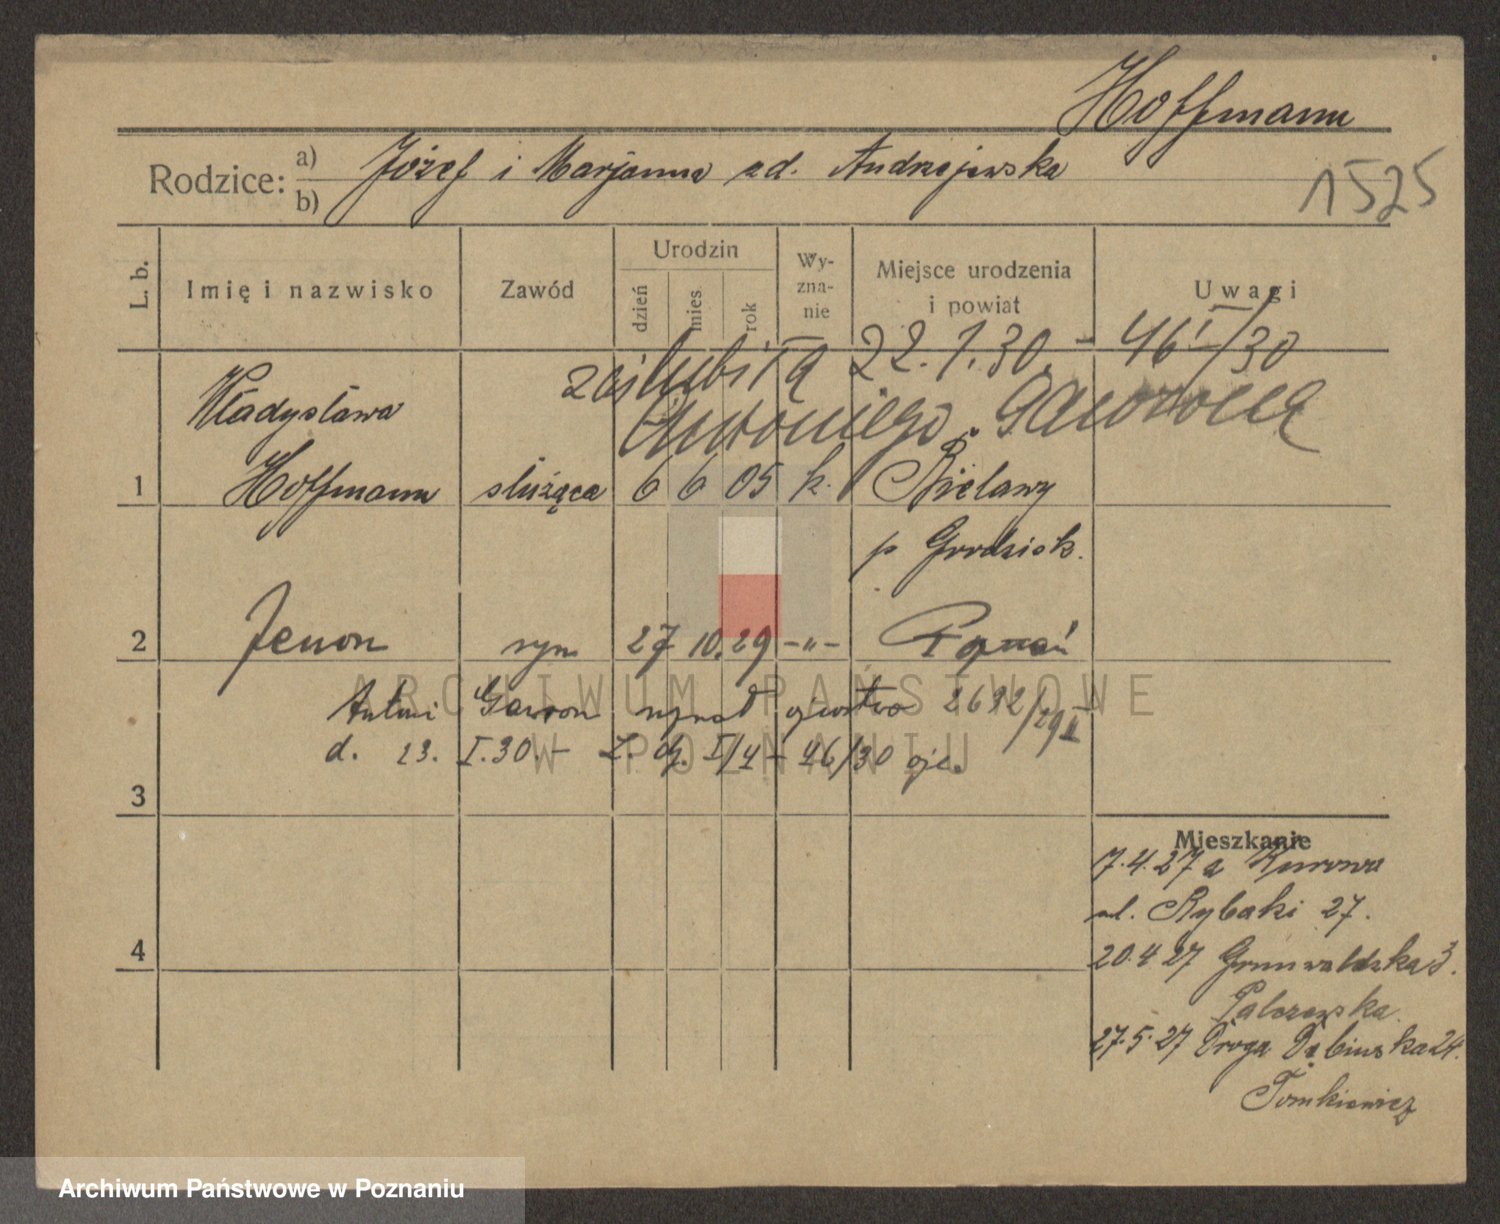 Hoffmann
Rodzice: a) Józef i Marjanna zd. Andrzejewska
b)
1525
L. b.
Imię i nazwisko
Zawód
Urodzin
dzień
mies.
rok
Wy-
zna-
nie
Miejsce urodzenia
i powiat
Uwagi
zaślubiła 22.1.30 - 46 I/30
Antoniego Gawrona
Władysława
1 Hoffmann służąca 6 6 05 k. Bielawy
p Grodzisk.
2 Zenon syn 27 10.29 -„- Poznań
Antoni Gawron uznał ojcostwo 2692/29 II
d. 23. I.30. - 46/30
3
Mieszkanie
7.4.27 a Kurowa
ul. Rybaki 27.
4
20.4.27 Grunwaldzka 3.
Palczewska
27.5.27 Droga Dębińska 24.
Tomkiewicz
ARCHIWUM PAŃSTWOWE
W POZNANIU
Archiwum Państwowe w Poznaniu